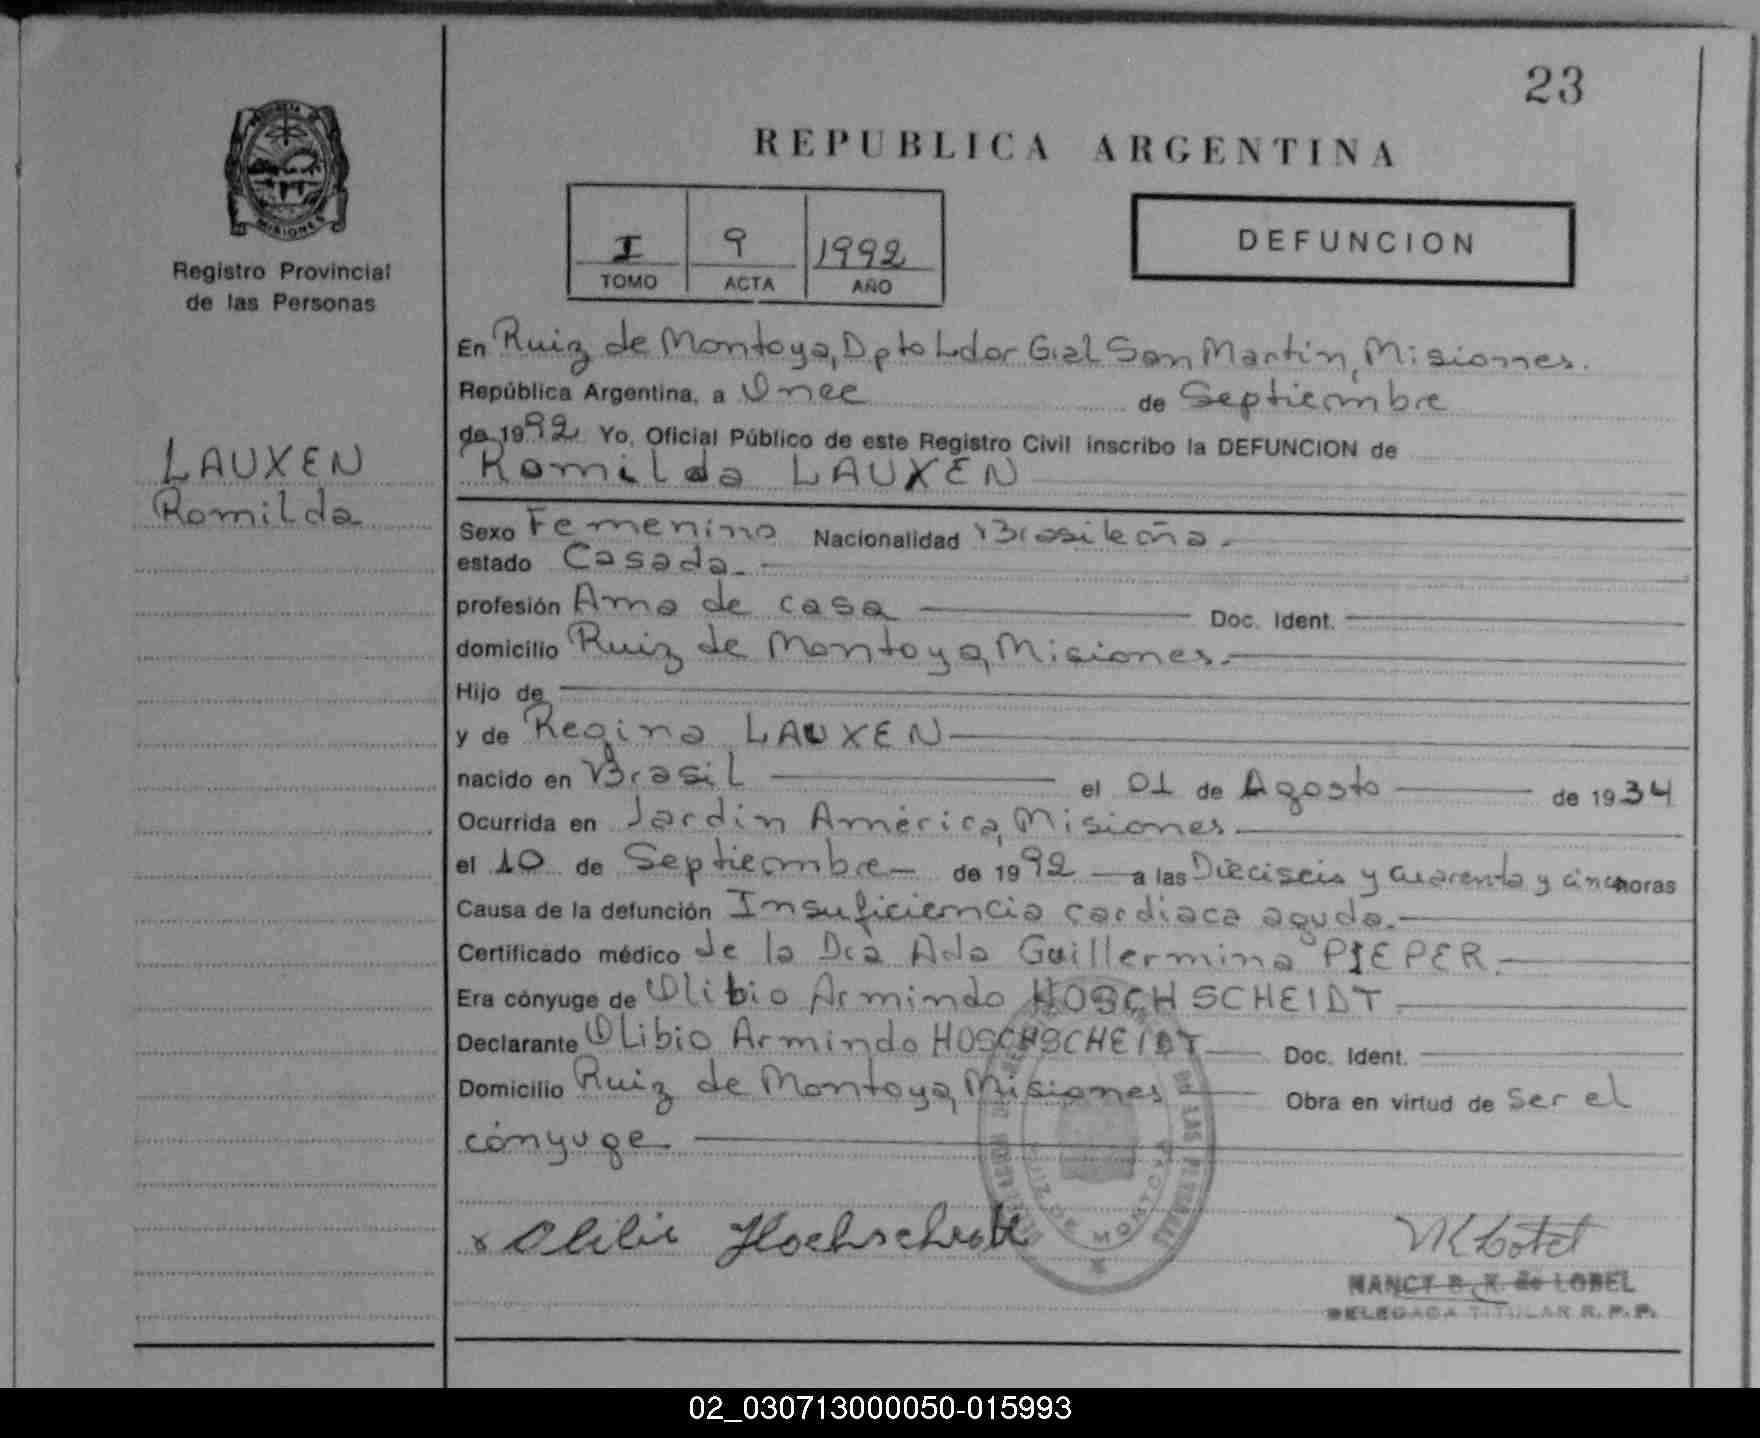 23
REPUBLICA ARGENTINA
PROVINCIA DE
MISIONES
Registro Provincial
de las Personas
I 9 1992
TOMO ACTA AÑO
DEFUNCION
En Ruiz de Montoya, Dpto Ldor Gral San Martin, Misiones.
República Argentina, a Once de Septiembre
de 1992 Yo, Oficial Público de este Registro Civil inscribo la DEFUNCION de
Romilda LAUXEN
LAUXEN
Romilda
Sexo Femenino Nacionalidad Brasileña.
estado Casada.
profesión Ama de casa Doc. Ident.
domicilio Ruiz de Montoya, Misiones.
Hijo de
y de Regina LAUXEN
nacido en Brasil el 01 de Agosto de 1934
Ocurrida en Jardin América, Misiones.
el 10 de Septiembre de 1992 a las Dieciseis y cuarenta y cinco horas
Causa de la defunción Insuficiencia cardiaca aguda.
Certificado médico de la Dra Ada Guillermina PIEPER.
Era cónyuge de Olibio Armindo HOSCHSCHEIDT
Declarante Olibio Armindo HOSCHSCHEIDT Doc. Ident.
Domicilio Ruiz de Montoya, Misiones Obra en virtud de ser el
cónyuge
DE LAS PERSONAS
RUIZ DE MONTOYA
x Olibio Hochscheidt
NANCY B. K. de LOBEL
DELEGADA TITULAR R. P. P.
02_030713000050-015993